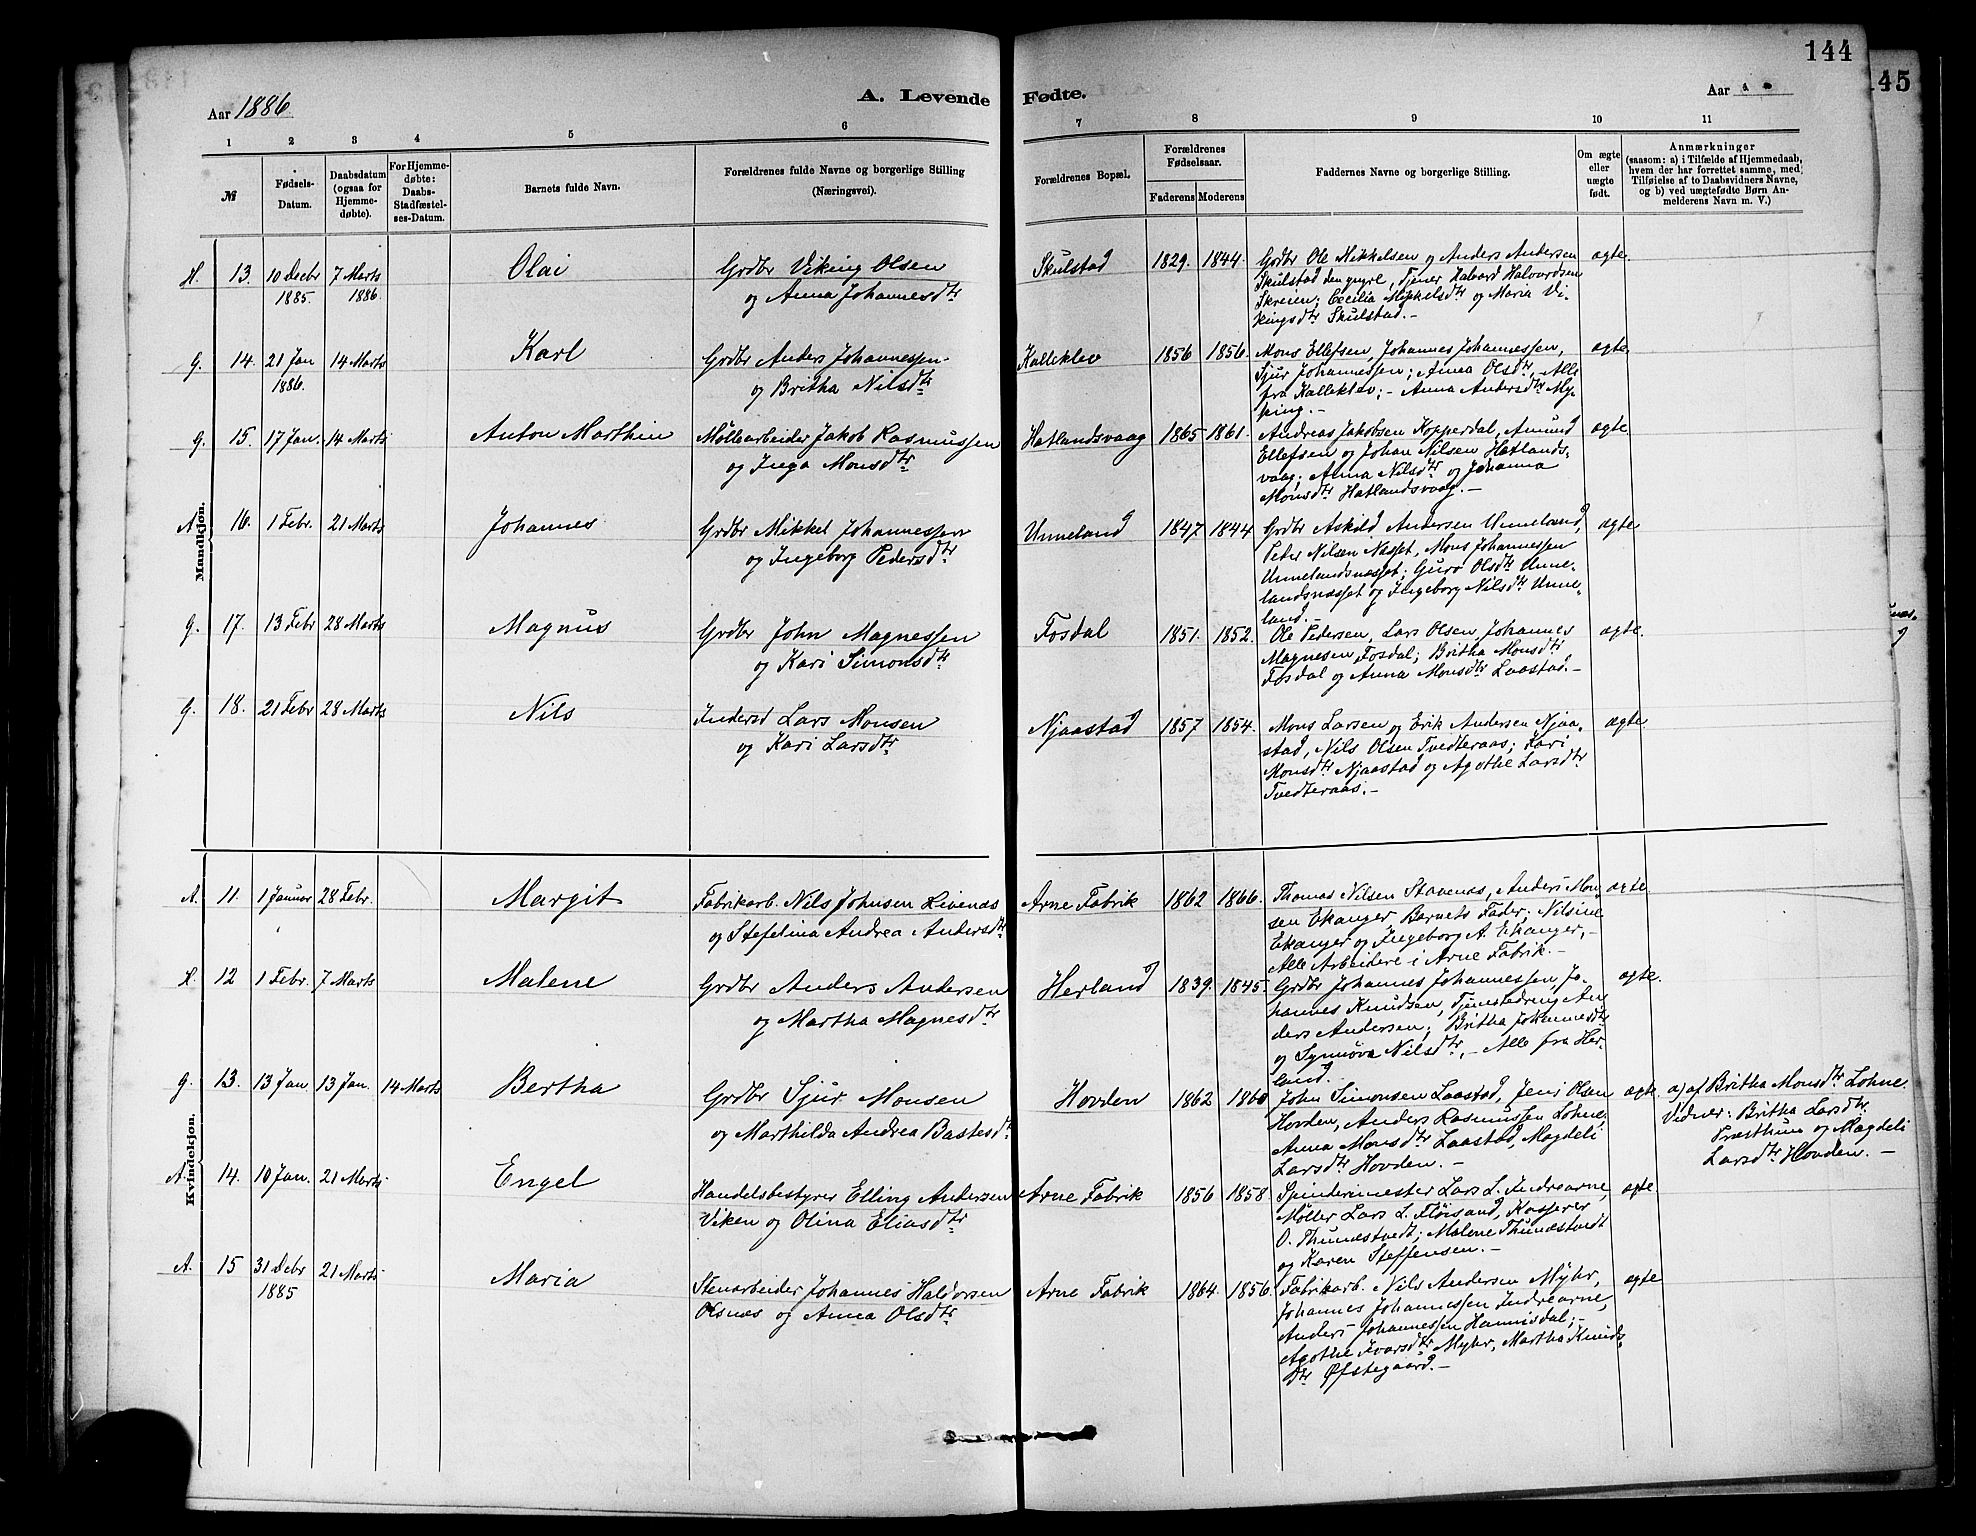 144
45
Aar 1886.
A. Levende
Fødte.
Aar " "
1 2 3 4 5 6 7 8 9 10 11
№
Fødsels-
Datum.
Daabsdatum
(ogsaa for
Hjemme-
døbte).
For Hjemme-
døbte:
Daabs-
Stadfæstel-
ses-Datum.
Barnets fulde Navn.
Forældrenes fulde Navne og borgerlige Stilling
(Næringsvei).
Forældrenes Bopæl.
Forældrenes
Fødselsaar.
Faderens Moderens
Faddernes Navne og borgerlige Stilling.
Om ægte
eller
uægte
født.
Anmærkninger
(saasom: a) i Tilfælde af Hjemmedaab,
hvem der har forrettet samme, med
Tilføielse af to Daabsvidners Navne,
og b) ved uægtefødte Børn An-
melderens Navn m. V.)
Mandkjøn.
H. 13. 10 Decbr 1885. 7 Marts 1886. Olai
Grdbr Viking Olsen
og Anna Johannesdtr
Skulstad 1829. 1844.
Grdbr Ole Mikkelsen og Anders Andersen
Skulstad den yngre, Tjener Halvard Halvardsen
Skreien; Cecilia Mikkelsdtr og Maria Vi-
kingsdtr Skulstad.-
ægte.
G. 14. 21 Jan 1886. 14 Marts Karl
Grdbr Anders Johannessen
og Britha Nilsdtr
Kalleklev 1856 1856.
Mons Ellefsen, Johannes Johannessen,
Sjur Johannessen; Anna Olsdtr,- Alle
fra Kalleklev;- Anna Andersdtr My-
king.-
ægte.
G. 15. 17 Jan. 14 Marts Anton Marthin
Møllearbeider Jakob Rasmussen
og Inga Monsdtr
Hatlandsvaag 1865 1861.
Andreas Jakobsen Kopperdal, Amund
Ellefsen og Johan Nilsen Hatlands-
vaag; Anna Nilsdtr og Johanna
Monsdtr Hatlandsvaag.-
ægte.
A. 16. 1 Febr. 21 Marts Johannes
Grdbr Mikkel Johannessen
og Ingeborg Pedersdtr
Unneland 1847 1844
Grdbr Askild Andersen Unneland,
Peder Nilsen Næsset, Mons Johannessen
Unnelandsnæsset; Guro Olsdtr Unne-
landsnæsset og Ingeborg Nilsdtr Unne-
land.-
ægte
G. 17. 13 Febr 28 Marts Magnus
Grdbr John Magnessen
og Kari Simonsdtr
Fosdal 1851. 1852.
Ole Pedersen, Lars Olsen, Johannes
Magnesen Fosdal; Britha Monsdtr
Fosdal og Anna Monsdtr Laastad.-
ægte.
G. 18. 21 Febr 28 Marts Nils
Inderst Lars Monsen
og Kari Larsdtr
Njaastad 1857 1854.
Mons Larsen og Erik Andersen Njaa-
stad, Nils Olsen Tvedteraas; Kari
Monsdtr Njaastad og Agothe Larsdtr
Tvedteraas.-
ægte
Kvindekjøn.
A. 11. 1 Januar 28 Febr. Margit
Fabrikarb. Nils Johnsen Livenæs
og Stefelina Andrea Andersdtr
Arne Fabrik 1862 1866.
Thomas Nilsen Stavenæs, Anders Mon-
sen Ekanger Barnets Fader; Nilsine
Ekanger og Ingeborg A. Ekanger,-
Alle Arbeidere i Arne Fabrik.-
ægte
H. 12 1 Febr. 7 Marts Malene
Grdbr Anders Andersen
og Martha Magnesdtr
Herland 1839. 1845.
Grdbr Johannes Johannessen, Jo-
hannes Knudsen, Tjenestedreng An-
ders Andersen; Britha Johannesdtr
og Synnøva Nilsdtr,- Alle fra Her-
land.
ægte.
G. 13. 13 Jan 13 Jan. 14 Marts Bertha
Grdbr Sjur Monsen
og Marthilda Andrea Bastesdtr
Hovden 1862 1860
John Simonsen Laastad, Jens Olsen
Hovden, Anders Rasmussen Lohne,
Anna Monsdtr Laastad, Magdeli
Larsdtr Hovden.-
ægte.
a) af Britha Monsdtr Lohne
Vidner: Britha Larsdtr
Præsthun og Magdeli
Larsdtr Hovden.-
A. 14. 10 Jan. 21 Marts. Engel
Handelsbestyrer Elling Andersen
Viken og Olina Eliasdtr
Arne Fabrik 1856 1858.
Spinderimester Lars L. Indrearne,
Møller Lars L. Fløisand, Kasserer
O. Thunæstvedt; Malene Thunæstvedt
og Karen Steffensen.-
ægte.
A. 15 31 Decbr 1885 21 Marts. Maria
Stenarbeider Johannes Haldorsen
Olsnæs og Anna Olsdtr
Arne Fabrik 1864. 1856.
Fabrikarb. Nils Andersen Myhr,
Johannes Johannessen Indrearne,
Anders Johannessen Hannisdal;-
Agothe Ivarsdtr Myhr, Martha Knuds-
dtr Øfstegaard.-
ægte